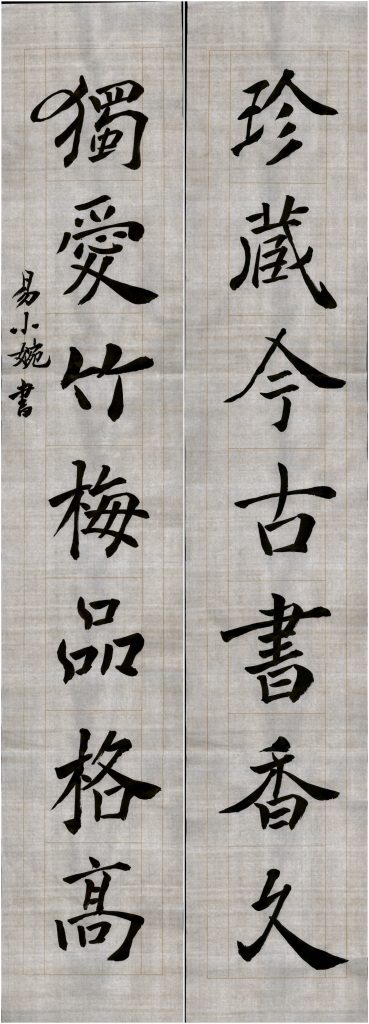 珍藏今古書香久
獨愛竹梅品格高
易小婉書